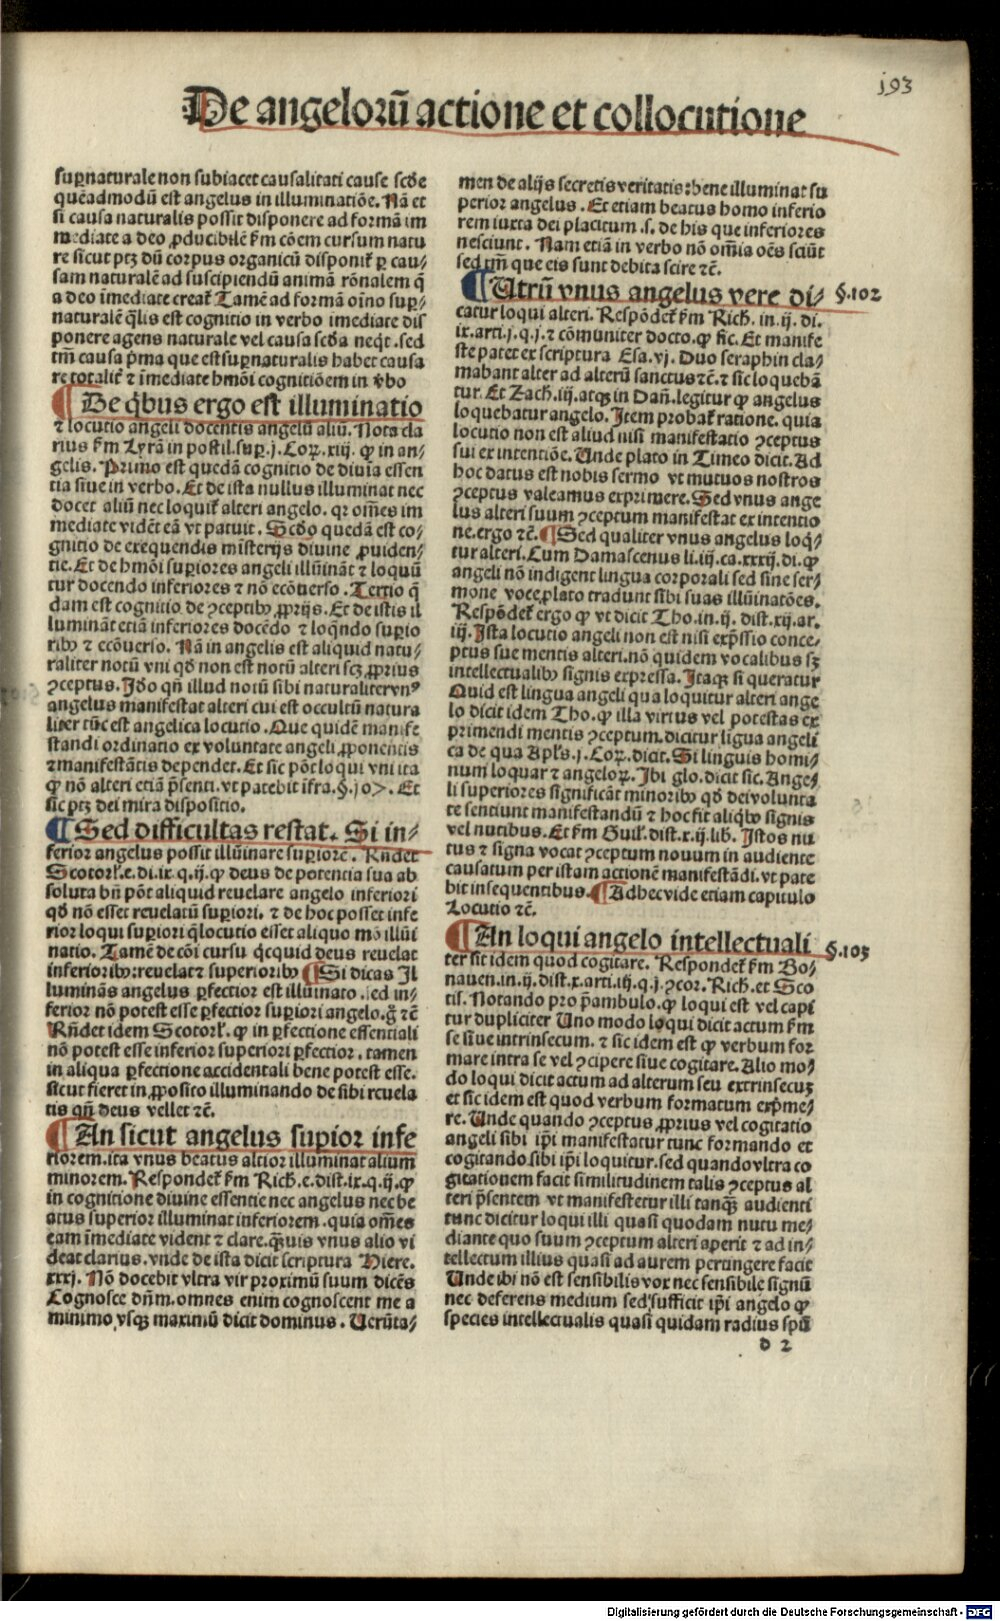 193
De angeloru̅ actione et collocutione
sup̱naturale non subiacet causalitati cause scd̓e
que̅admodu̅ est angelus in illuminatio̅e. Na̅ et
si causa naturalis possit disponere ad forma̅ im
mediate a deo ꝓducibile̅ ẜm co̅em cursum natu
re sicut ptꝫ du̅ corpus organicu̅ disponit᷑ ꝑ cau⸗
sam naturale̅ ad suscipiendu̅ anima̅ ro̅nalem q̅
a deo i̅mediate creat᷑ Tame̅ ad forma̅ oi̅no sup̱⸗
naturale̅ q̅lis est cognitio in verbo imediate dis
ponere agens naturale vel causa scd̓a neq̓t. sed
tm̅ causa p̓ma que est sup̱naturalis habet causa
re totalit᷑ ⁊ i̅mediate hmo̅i cognitio̅em in v̓bo
¶ De q̓bus ergo est illuminatio
⁊ locutio angeli docentis angelu̅ aliu̅. Nota cla
rius ẜm Lyra̅ in postil. suꝑ. j. Coꝝ. xiij. ꝙ in an⸗
gelis. Primo est queda̅ cognitio de diuia essen
tia siue in verbo. Et de ista nullus illuminat nec
docet aliu̅ nec loquit᷑ alteri angelo. qꝛ om̅es im
mediate vide̅t ea̅ vt patuit. Scd̓o queda̅ est co⸗
gnitio de exequendis mi̅sterijs diuine ꝓuiden⸗
tie. Et de hmo̅i sup̱iores angeli illu̅ina̅t ⁊ loquu̅
tur docendo inferiores ⁊ no̅ eco̅uerso. Tertio q̅
dam est cognitio de ꝯceptibꝰ ꝓprijs. Et de istis il
lumina̅t etia̅ inferiores doce̅do ⁊ loq̅ndo supio
ribꝰ ⁊ eco̅uerso. Na̅ in angelis est aliquid natu⸗
raliter notu̅ vni qd̓ non est notu̅ alteri scꝫ ꝓprius
ꝯceptus. Jd̓o qn̅ illud notu̅ sibi naturaliter vnꝰ
angelus manifestat alteri cui est occultu̅ natura
liter tu̅c est angelica locutio. Que quide̅ manife
standi ordinatio ex voluntate angeli ꝓponentis
⁊ manifesta̅tis dependet. Et sic po̅t loqui vni ita
ꝙ no̅ alteri etia̅ p̅senti. vt patebit i̅fra. §. j0>. Et
sic ptꝫ dei mira dispositio.
¶ Sed difficultas restat. Si in⸗
ferior angelus possit illu̅inare sup̱iore̅. Rn̅det
Scotorꝭ. e. di. ix. q. ij. ꝙ deus de potentia sua ab
soluta bn̅ po̅t aliquid reuelare angelo inferiori
qd̓ no̅ esset reuelatu̅ sup̱iori. ⁊ de hoc posset infe
rior loqui sup̱iori q̅ locutio esset aliquo mo̅ illu̅i
natio. Tame̅ de co̅i cursu q̓cquid deus reuelat
inferioribꝰ: reuelat ⁊ superioribꝰ ¶ Si dicas Jl
lumina̅s angelus ꝑfectior est illu̅inato. sed in⸗
ferior no̅ potest esse ꝑfectior sup̱iori angelo. g̊ ⁊c̅
Rn̅det idem Scotorꝭ. ꝙ in ꝑfectione essentiali
no̅ potest esse inferior superiori ꝑfectior. tamen
in aliqua ꝑfectione accidentali bene potest esse.
sicut fieret in ꝓposito illuminando de sibi reuela
tis qn̅ deus vellet ⁊c̅.
¶ An sicut angelus sup̱ior infe
riorem. ita vnus beatus altior illuminat alium
minorem. Respondet᷑ ẜm Rich. e. dist. ix. q. ij. ꝙ
in cognitione diuine essentie nec angelus nec be
atus superior illuminat inferiorem. quia om̅es
eam i̅mediate vident ⁊ clare. qꝫuis vnus alio vi
deat clarius. vnde de ista dicit scriptura Hiere.
xxxj. No̅ docebit vltra vir proximu̅ suum dice̅s
Cognosce dn̅m. omnes enim cognoscent me a
minimo vsqꝫ maximu̅ dicit dominus. Ueru̅ta⸗
men de alijs secretis veritatis: bene illuminat su
perior angelus. Et etiam beatus homo inferio
rem iuxta dei placitum. s. de his que inferiores
nesciunt. Nam etia̅ in verbo no̅ om̅ia oe̅s sciu̅t
sed tm̅ que eis sunt debita scire ⁊c̅.
¶ Utru̅ vnus angelus vere di⸗ §. 102
catur loqui alteri. Respo̅det᷑ ẜm Rich. in. ij. di.
ix. arti. j. q. j. ⁊ co̅muniter docto. ꝙ sic. Et manife
ste patet ex scriptura Esa. vj. Duo seraphin cla⸗
mabant alter ad alteru̅ sanctus ⁊c̅. ⁊ sic loqueba̅
tur. Et Zach. iij. atqꝫ in Dan̅. legitur ꝙ angelus
loquebatur angelo. Jtem probat᷑ ratione. quia
locutio non est aliud nisi manifestatio ꝯceptus
sui ex intentio̅e. Unde plato in Timeo dicit. Ad
hoc datus est nobis sermo vt mutuos nostros
ꝯceptus valeamus exprimere. Sed vnus ange
lus alteri suum ꝯceptum manifestat ex intentio
ne. ergo ⁊c̅. ¶ Sed qualiter vnus angelus loq̓⸗
tur alteri. Cum Damascenus li. iij. ca. xxxij. di. ꝙ
angeli no̅ indigent lingua corporali sed sine ser⸗
mone voce ꝓlato tradunt sibi suas illu̅inato̅es.
Respo̅det᷑ ergo ꝙ vt dicit Tho. in. ij. dist. xij. ar.
iij. Jsta locutio angeli non est nisi exp̅ssio conce⸗
ptus sue mentis alteri. no̅ quidem vocalibus sꝫ
intellectualibꝰ signis expressa. Jtaqꝫ si queratur
Quid est lingua angeli qua loquitur alteri ange
lo dicit idem Tho. ꝙ illa virtus vel potestas ex
primendi mentis ꝯceptum. dicitur ligua angeli
ca de qua Apl̓s. j. Coꝝ. dicit. Si linguis homi⸗
num loquar ⁊ angeloꝝ. Jbi glo. dicit sic. Ange⸗
li superiores significa̅t minoribꝰ qd̓ dei volunta
te sentiunt manifestandu̅ ⁊ hoc fit aliq̓bꝰ signis
vel nutibus. Et ẜm Guil̓. dist. x. ij. lib. Jstos nu
tus ⁊ signa vocat ꝯceptum nouum in audiente
causatum per istam actione̅ manifesta̅di. vt pate
bit in sequentibus. ¶ Ad hec vide etiam capitulo
Locutio ⁊c̅.
¶ An loqui angelo intellectuali §. 103
ter sit idem quod cogitare. Respondet᷑ ẜm Bo⸗
nauen. in. ij. dist. x. arti. iij. q. j. ⁊ cor. Rich. et Sco
tis. Notando pro p̅ambulo. ꝙ loqui est vel capi
tur dupliciter Uno modo loqui dicit actum ẜm
se siue intrinsecum. ⁊ sic idem est ꝙ verbum for
mare intra se vel ꝯcipere siue cogitare. Alio mo⸗
do loqui dicit actum ad alterum seu extrinsecuꝫ
et sic idem est quod verbum formatum exp̓me⸗
re. Unde quando ꝯceptus ꝓprius vel cogitatio
angeli sibi ip̅i manifestatur tunc formando et
cogitando sibi ip̅i loquitur. sed quando vltra co
gitationem facit similitudinem talis ꝯceptus al
teri p̅sentem vt manifestetur illi tanqꝫ̅ audienti
tunc dicitur loqui illi quasi quodam nutu me⸗
diante quo suum ꝯceptum alteri aperit ⁊ ad in⸗
tellectum illius quasi ad aurem pertingere facit
Unde ibi no̅ est sensibilis vox nec sensibile signu̅
nec deferens medium sed sufficit ip̅i angelo ꝙ
species intellectualis quasi quidam radius spu̅
d 2
Digitalisierung gefördert durch die Deutsche Forschungsgemeinschaft - DFG